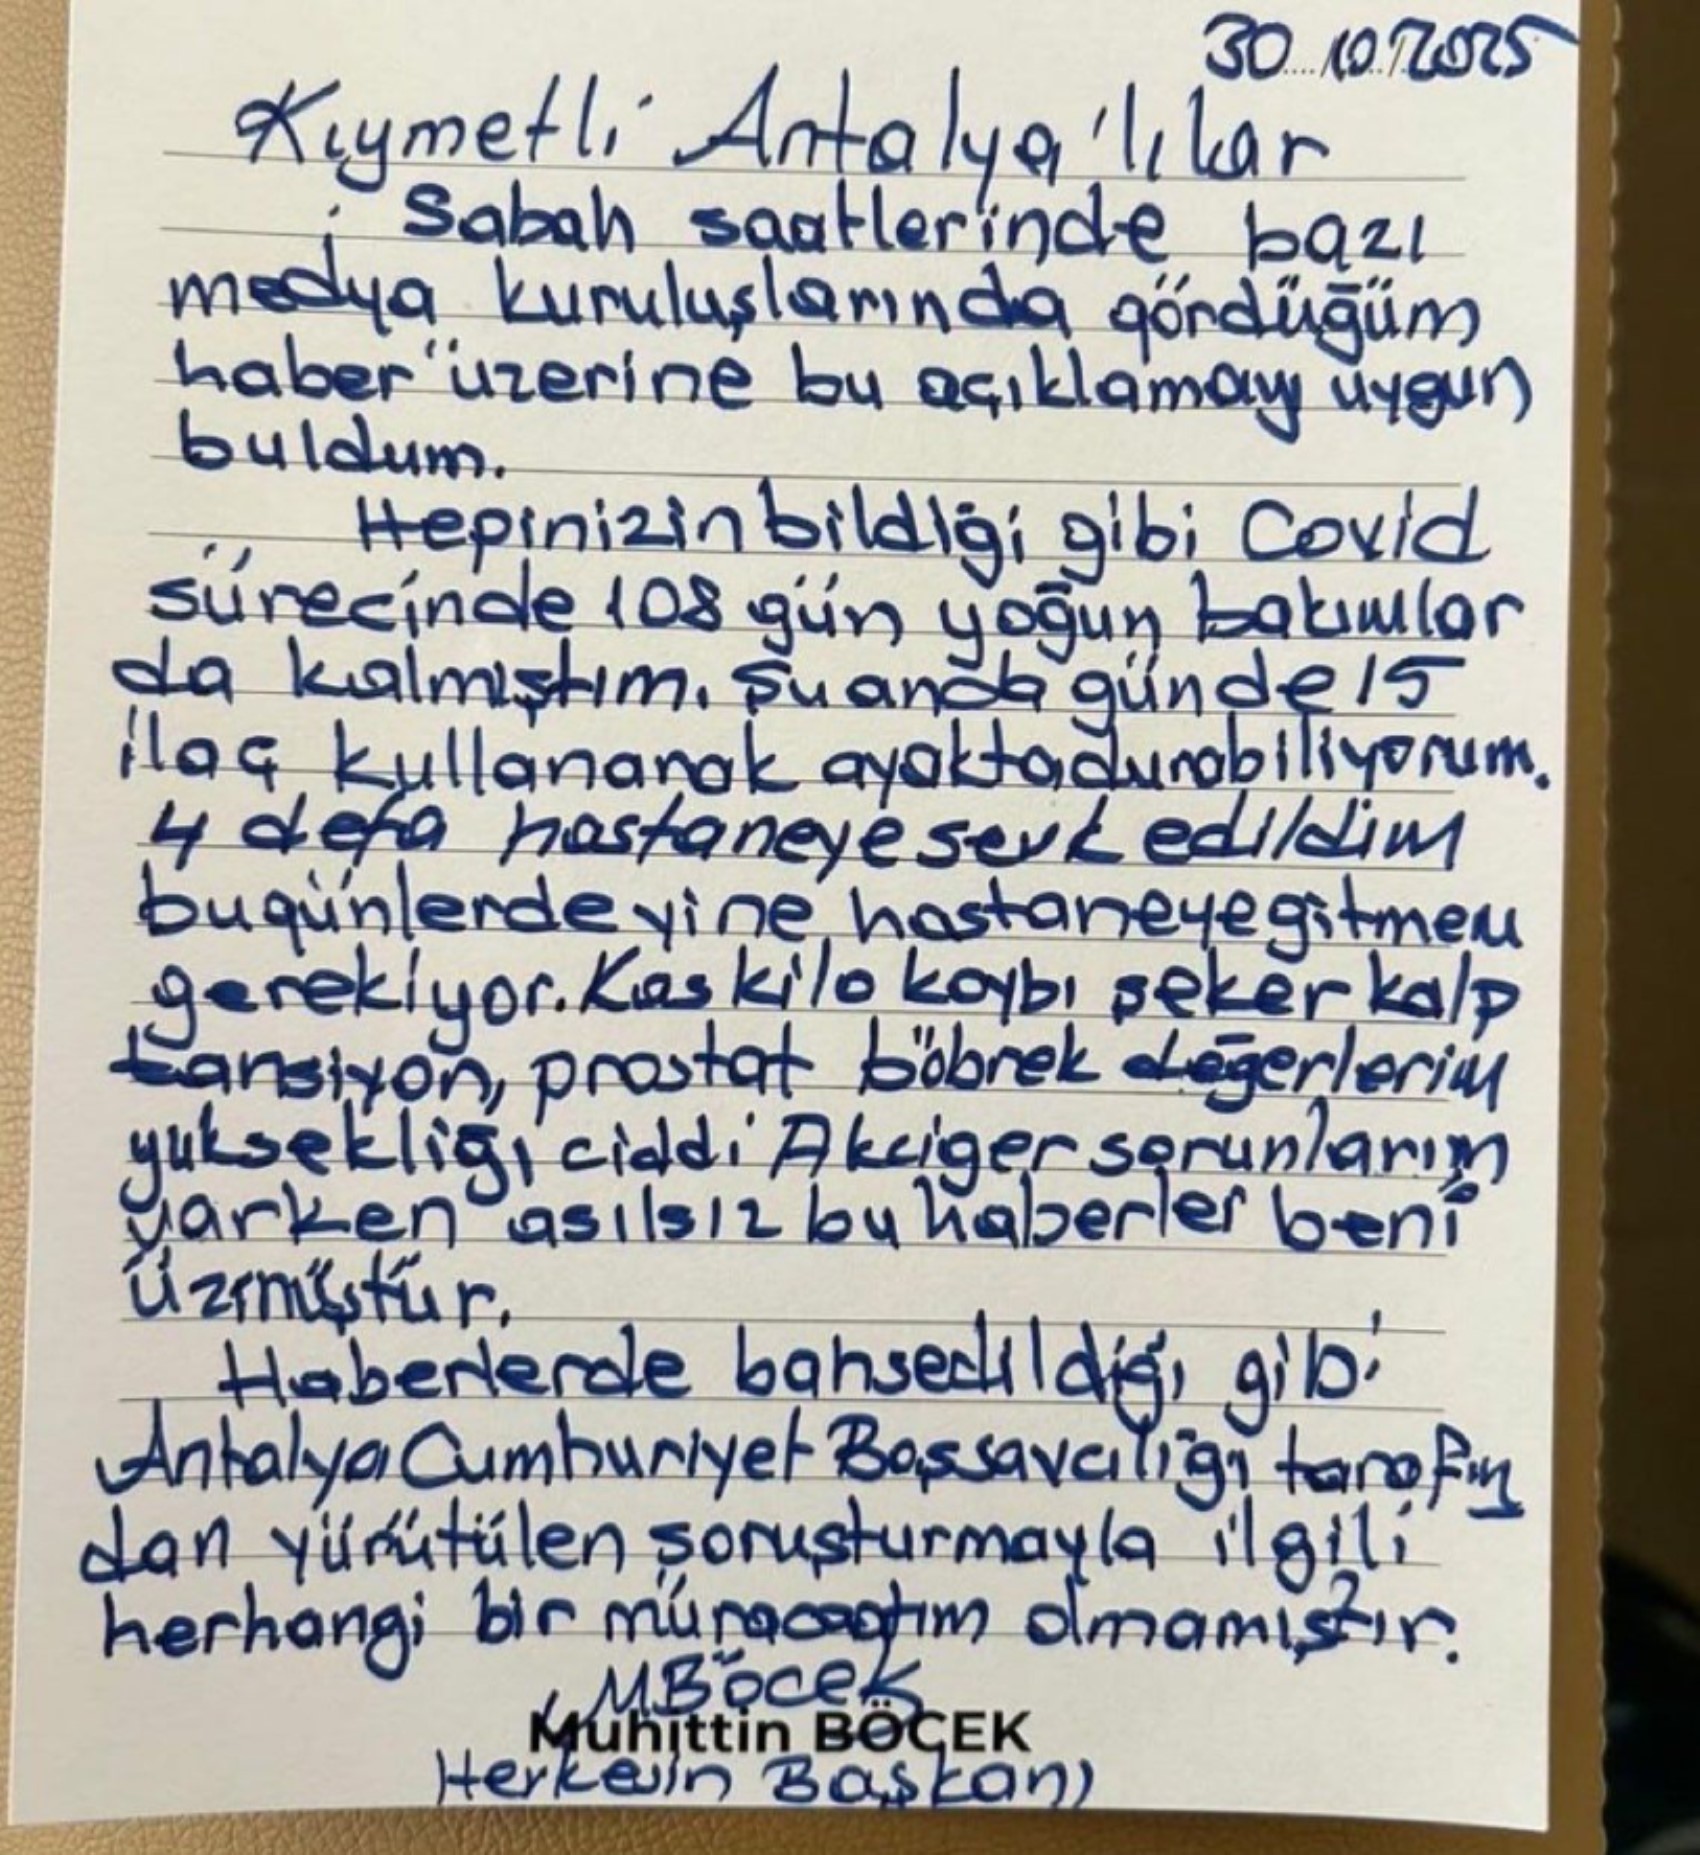 30.10.2025
Kıymetli Antalya'lılar
Sabah saatlerinde bazı
medya kuruluşlarında gördüğüm
haber üzerine bu açıklamayı uygun
buldum.
Hepinizin bildiği gibi Covid
sürecinde 108 gün yoğun bakımlar
da kalmıştım. Şuanda günde 15
ilaç kullanarak ayaktadurabiliyorum.
4 defa hastaneye sevk edildim
bugünlerde yine hastaneye gitmem
gerekiyor. Kas kilo kaybı şeker kalp
tansiyon, prostat böbrek değerlerim
yüksekliği ciddi Akciger sorunlarım
varken asılsız bu haberler beni
üzmüştür.
Haberlerde bahsedildiği gibi
Antalya Cumhuriyet Başsavcılığı tarafın
dan yürütülen soruşturmayla ilgili
herhangi bir müracaatım olmamıştır.
MBöcek
Muhittin BÖCEK
Herkesin Başkanı